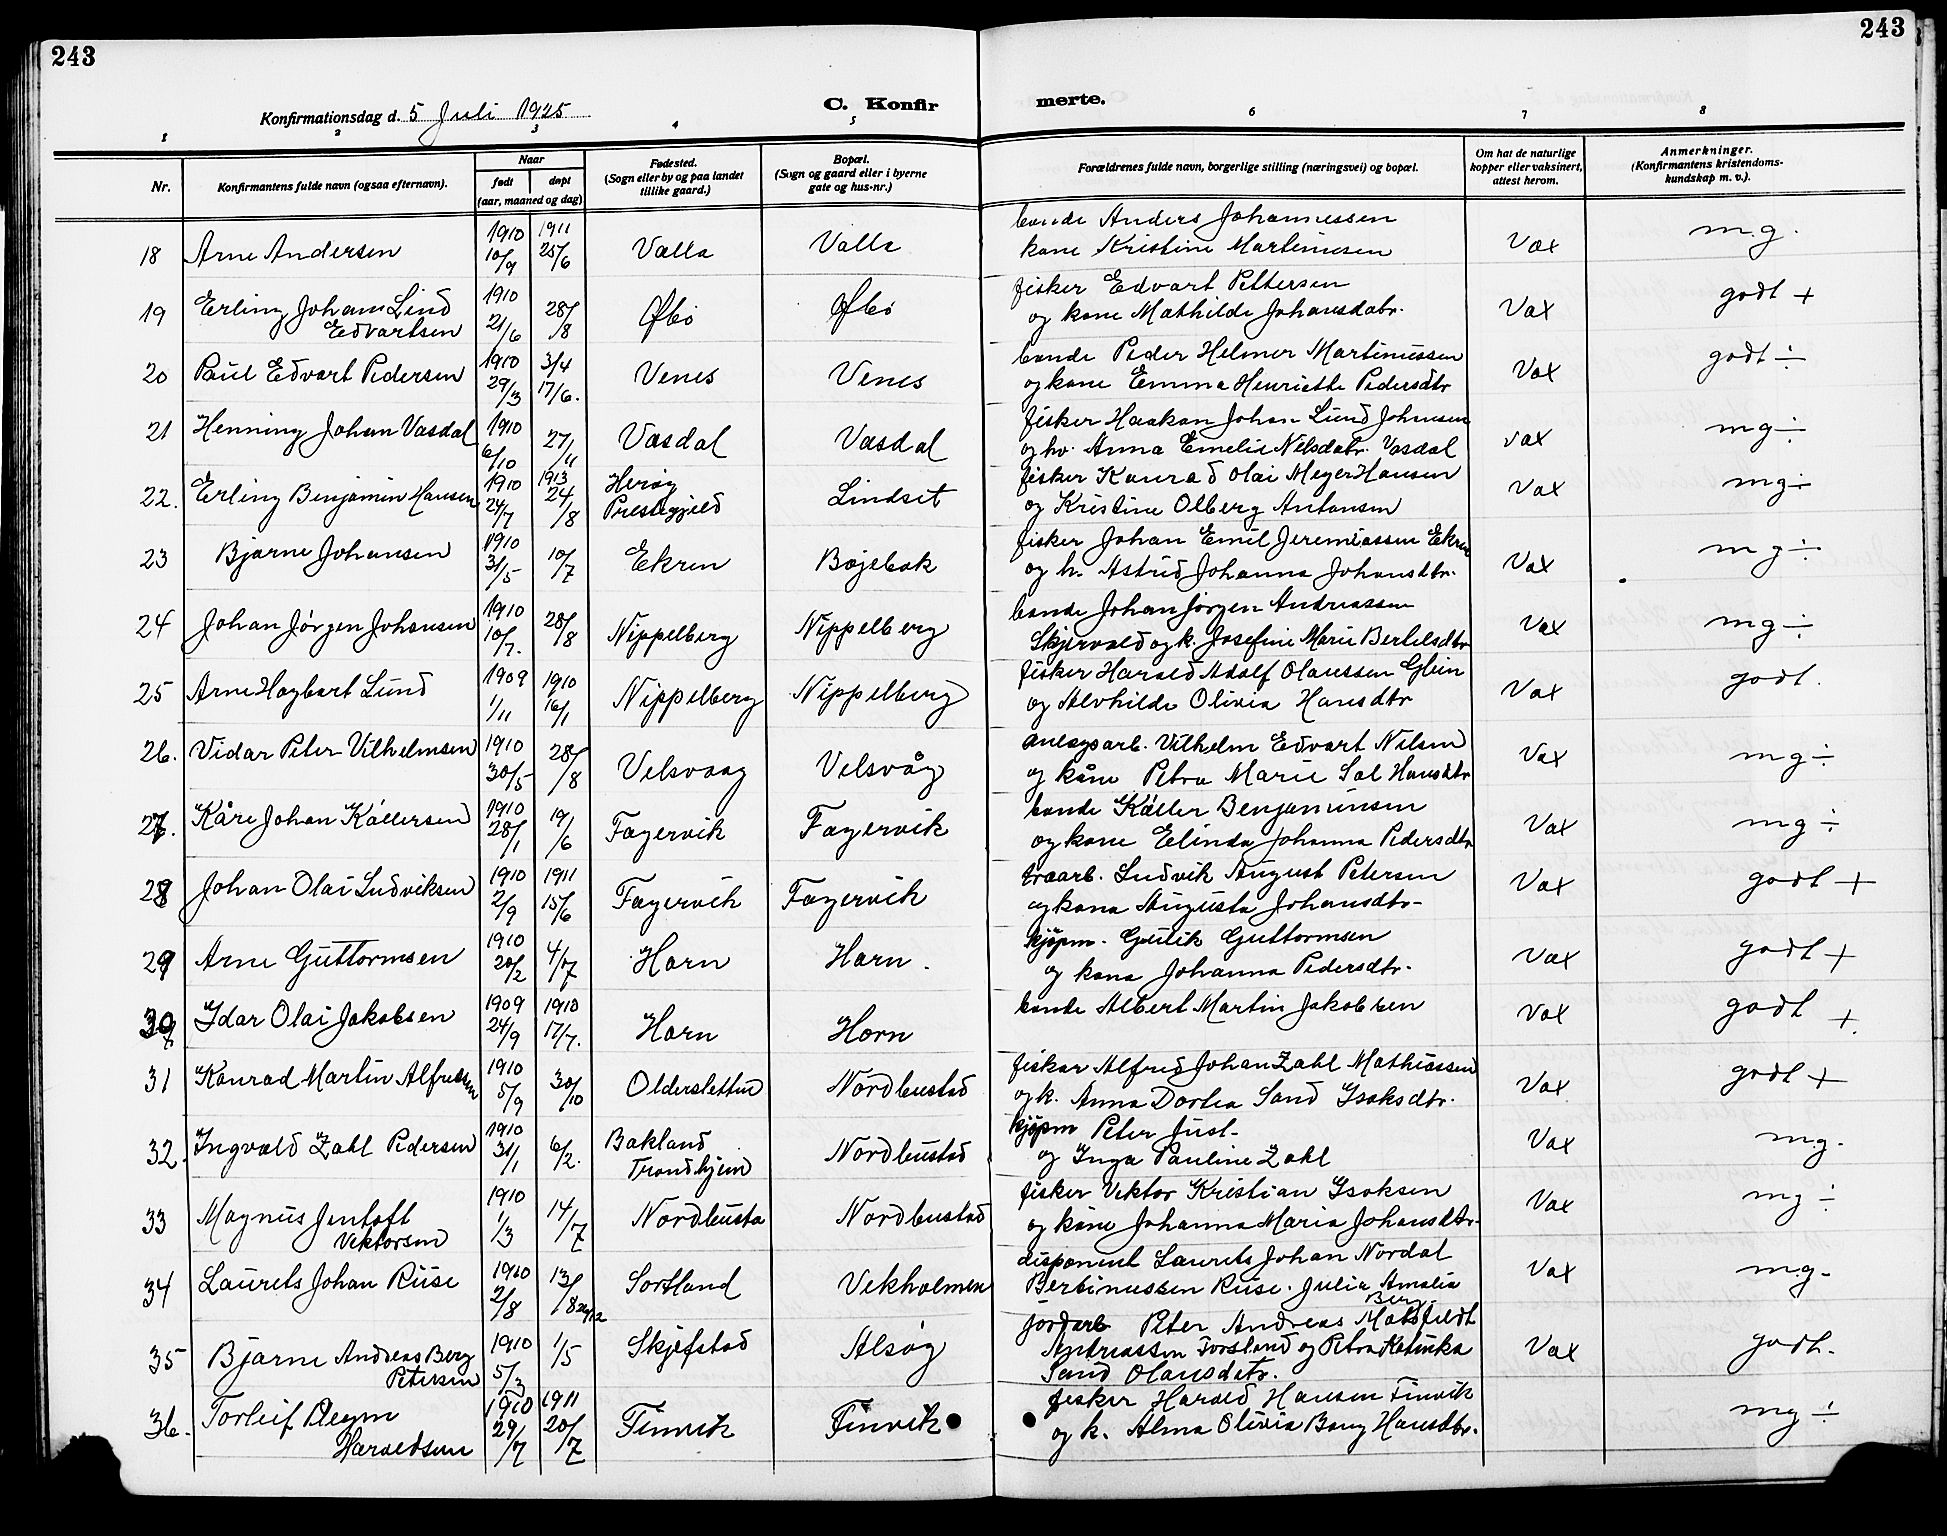 243
243
Konfirmationsdag d. 5 Juli 1925
C. Konfir
merte.
1 2 3 4 5 6 7 8
Nr.
Konfirmantens fulde navn (ogsaa efternavn).
Naar
født døpt
(aar, maaned og dag)
Fødested.
(Sogn eller by og paa landet
tillike gaard.)
Bopæl.
(Sogn og gaard eller i byerne
gate og hus-nr.)
Forældrenes fulde navn, borgerlige stilling (næringsvei) og bopæl.
Om hat de naturlige
kopper eller vaksinert,
attest herom.
Anmerkninger.
(Konfirmantens kristendoms-
kundskap m. v.).
18 Arne Andersen 1910 10/9 1911 25/6 Valla Valla bonde Anders Johannessen
kone Kristine Martinusen Vax m.g.
19 Erling Johan Lind
Edvartsen 1910 21/6 28/8 Øksø Øksø fisker Edvart Pettersen
og kone Mathilde Johansdatr. Vax godt +
20 Paul Edvart Pedersen 1910 29/3 3/4 17/6. Venes Venes bonde Peder Helmer Martinussen
og kone Emma Henriette Pedersdtr Vax godt ÷
21 Henning Johan Vasdal 1910 6/10 27/11 Vasdal Vasdal fisker Haakon Johan Lund Johnsen
og hv. Anna Emelie Nilsdatr. Vasdal vax mg ÷
22. Erling Benjamin Hansen 1910 24/7 1913 24/8 Herøy
Prestegjeld Lindset fisker Konrad Olai Meyer Hansen
og Kristine Olberg Antonsen Vax mg ÷
23 Bjarne Johansen 1910 31/5 10/7 Ekren Bøjebak fisker Johan Emil Jeremiassen Ekren
og h. Astrid Johanna Johansdtr. Vax mg ÷
24 Johan Jørgen Johansen 1910 10/7. 28/8 Nippelberg Nippelberg bonde Johan Jørgen Andreassen
Skjervold og k. Josefine Marie Bertelsdtr Vax mg ÷
25 Arne Hagbart Lund 1909 1/11 1910 16/1 Nippelberg Nippelberg fisker Harald Adolf Olaussen Glein
og Alvhilde Olivia Hansdtr Vax godt.
26. Vidar Peter Vilhelmsen 1910 30/5 28/8 Velsvaag Velsvåg anlegsarb. Vilhelm Edvart Nilsen
og kåne Petra Marie Sal Hansdtr Vax mg ÷
27. Kåre Johan Kållersen 1910 28/1 19/6 Fagervik Fagervik bonde Køller Benjaminsen
og kone Elinda Johanna Pedersdtr Vax mg ÷
28 Johan Olai Ludviksen 1910 2/9 1911 15/6 Fagervik Fagervik traarb. Ludvik August Petersen
og kona Augusta Johansdtr- Vax godt +
29 Arne Guttormsen 1910 20/2 4/7 Horn Horn. kjøpm. Gulik Guttormsen
og kona Johanna Pedersdtr. Vax godt +
30 Idar Olai Jakobsen 1909 24/9 1910 17/7. Horn Horn bonde Albert Martin Jakobsen Vax godt +
31 Konrad Martin Alfredsen 1910 5/9 30/10 Oldersletten Nordbustad fisker Alfred Johan Zahl Mathiassen
og k. Anna Dortea Sand Isaksdtr. Vax godt +
32. Ingvald Zahl Pedersen 1910 31/1 6/2. Bakland
Trondhjem Nordbustad kjøpm Peter Just-
og Inga Pauline Zahl Vax mg.
33 Magnus Jentoft
Viktorsen 1910 1/3 14/7 Nordbusta Nordbustad fisker Viktor Kristian Isaksen
og kone Johanna Maria Johansdtr. Vax mg ÷
34 Laurets Johan Riise 1910 2/8 13/8 Sortland Vekholmen disponent Laurets Johan Nordal
Bertinussen Riise. Julie Amalia Vax m.g.
35 Bjarne Andreas Berg
Petersen 1910 5/3 1/5 Skjefstad Alsøy jordarb Peter Andreas Berg Matsfeldt
Andreassen Forsland og Petra Katinka
Sand Olausdatr. Vax godt.
36. Torleif
Haraldsen 1910 29/7 1911 20/7 Finvik Finvik fisker Harald Hansen Finvik
og k. Alma Olivia Bang Hansdtr. mg ÷